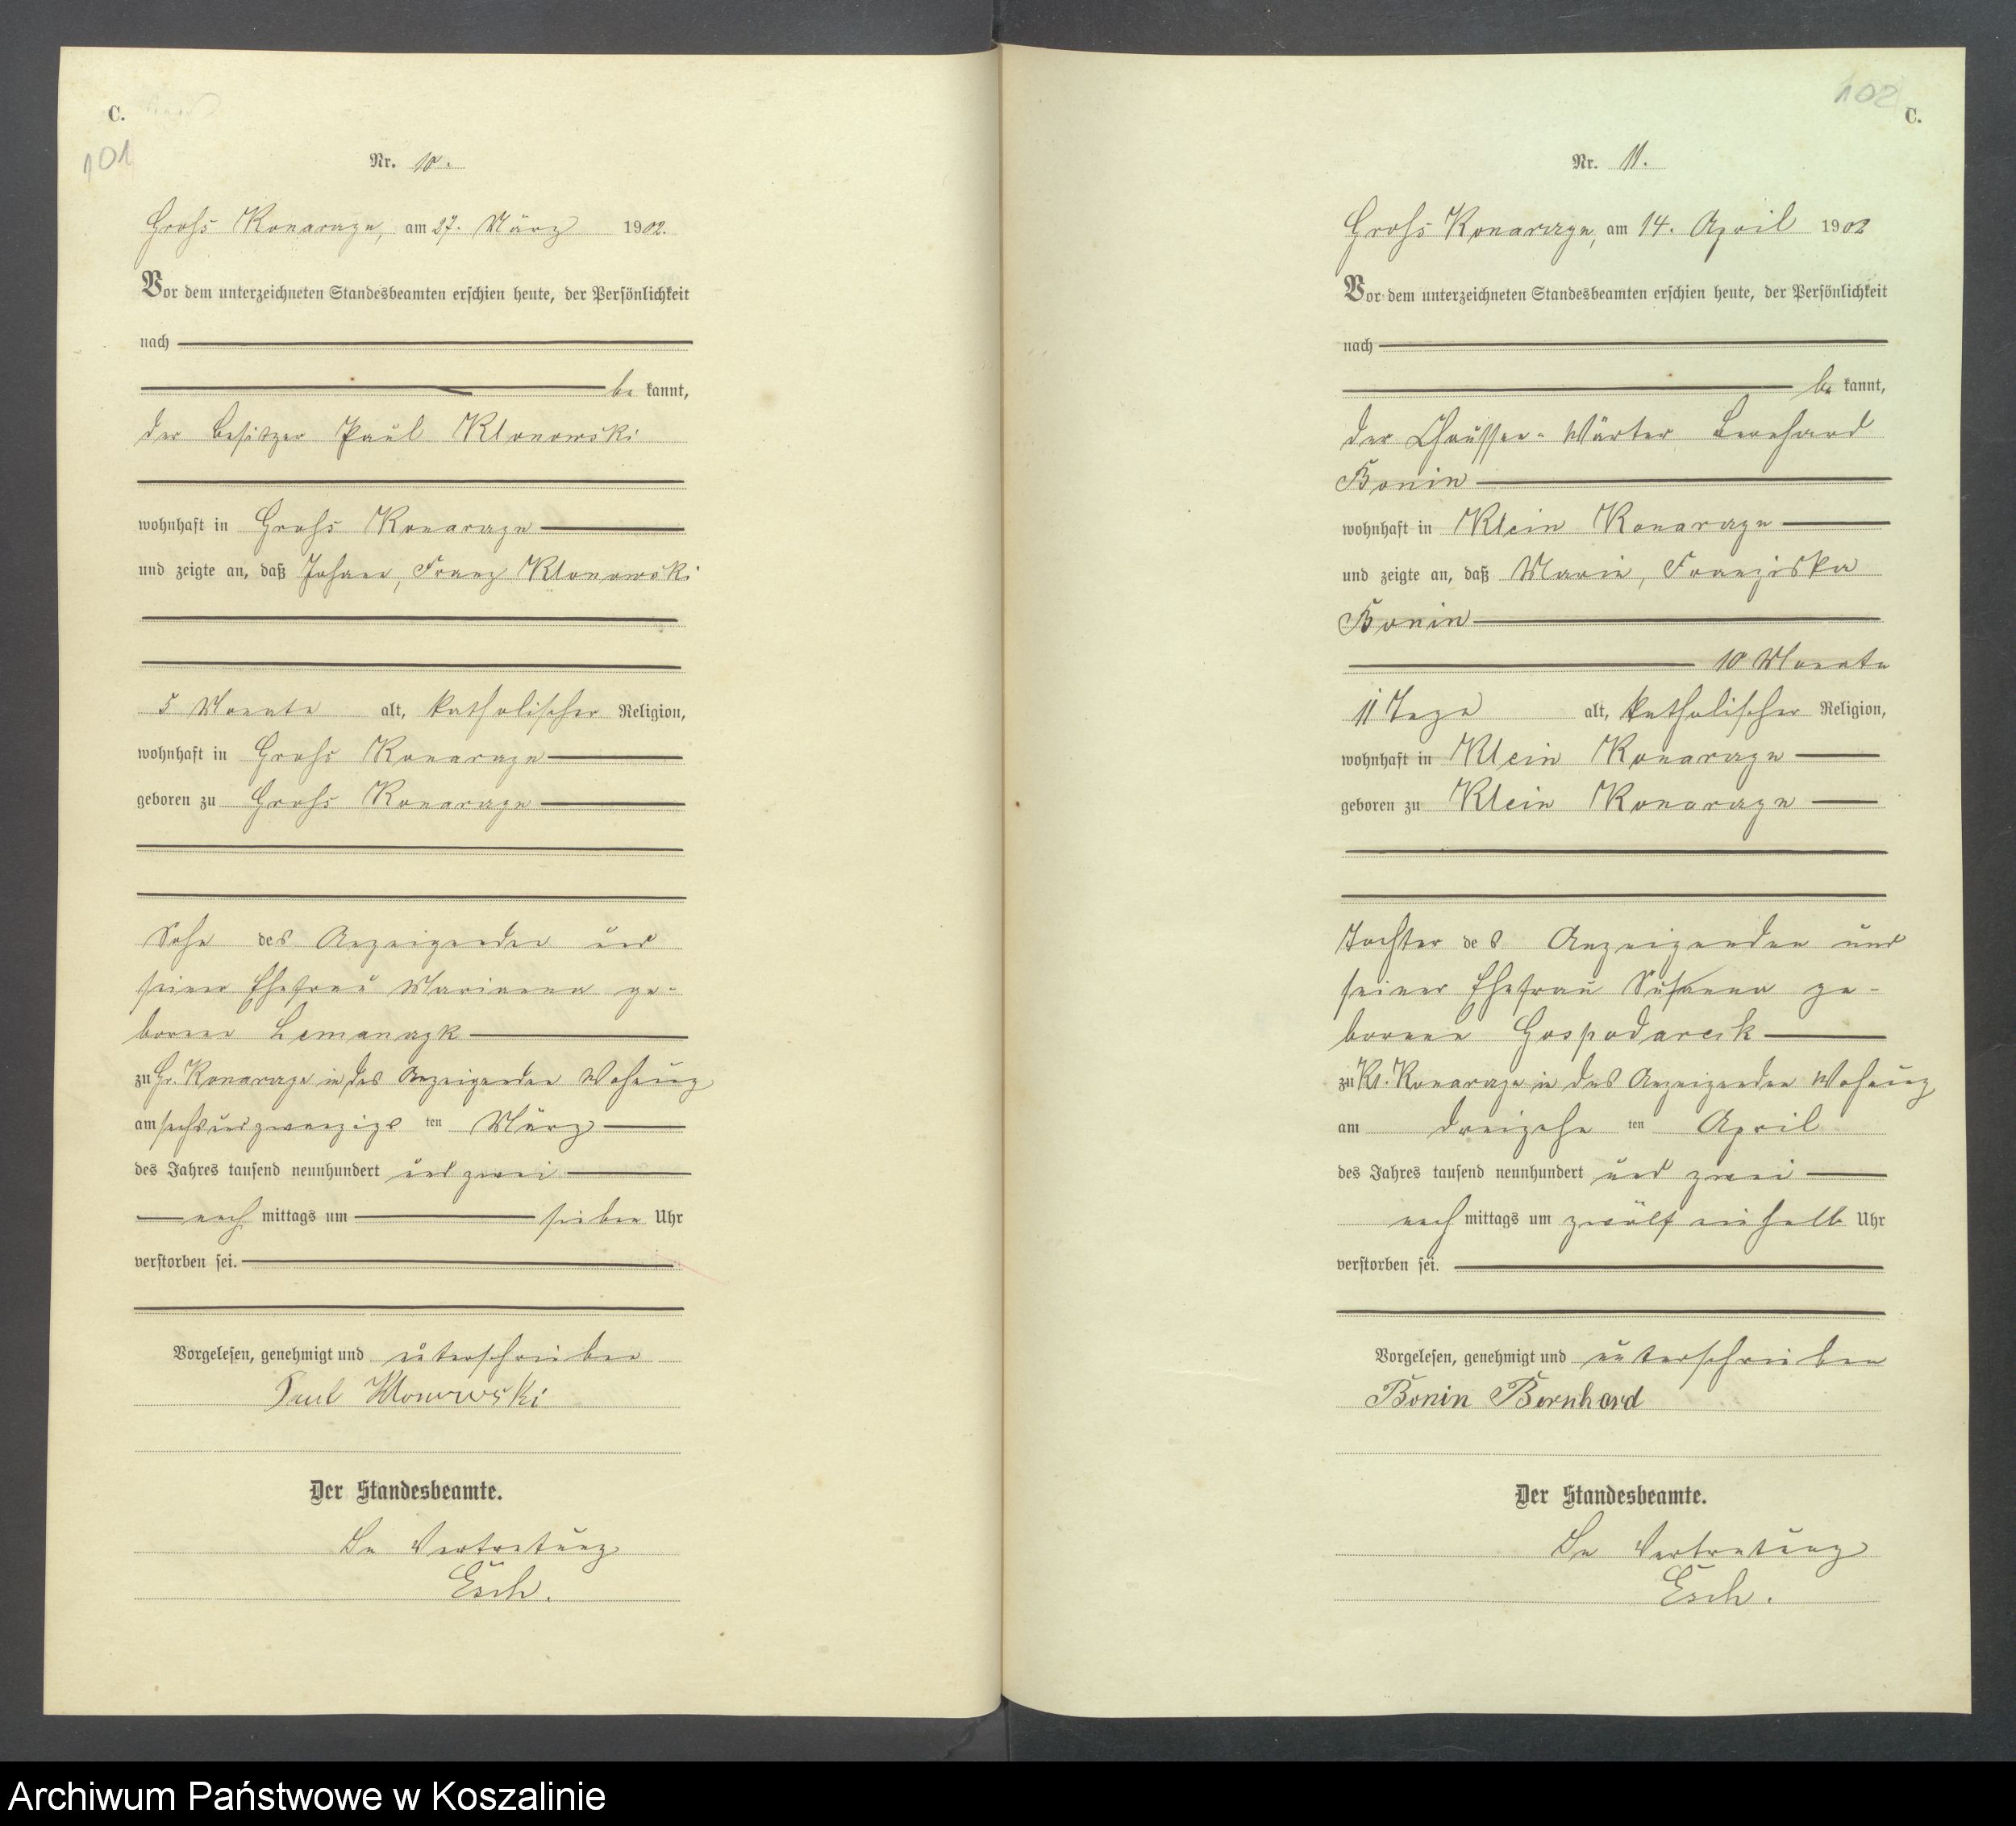 C.
101
Nr. 10.
Groß Konarczyn, am 27. März 1902.
Vor dem unterzeichneten Standesbeamten erschien heute, der Persönlichkeit
nach
be kannt,
der Besitzer Paul Klonowski
wohnhaft in Groß Konarczyn
und zeigte an, daß Johann, Franz Klonowski
5 Monate alt, katholischer Religion,
wohnhaft in Groß Konarczyn
geboren zu Groß Konarczyn
Sohn des Anzeigenden und
seiner Ehefrau Marianna ge-
borene
zu Gr. Konarczyn in des Anzeigenden Wohnung
am sechsundzwanzigs ten März
des Jahres tausend neunhundert und zwei
nach mittags um sieben Uhr
verstorben sei.
Vorgelesen, genehmigt und unterschrieben
Paul Klonowski
Der Standesbeamte.
In Vertretung
Esch.
102
C.
Nr. 11.
Groß Konarczyn, am 14. April 1902
Vor dem unterzeichneten Standesbeamten erschien heute, der Persönlichkeit
nach
be kannt,
der Chaussee-Wärter Bernhard
Bonin
wohnhaft in Klein Konarczyn
und zeigte an, daß Marie, Franziska
Bonin
10 Monate
11 Tage alt, katholischer Religion,
wohnhaft in Klein Konarczyn
geboren zu Klein Konarczyn
Tochter des Anzeigenden und
seiner Ehefrau Susanna ge-
borene Gospodarek
zu Kl. Konarczyn in des Anzeigenden Wohnung
am dreizehn ten April
des Jahres tausend neunhundert und zwei
nach mittags um zwölf einhalb Uhr
verstorben sei.
Vorgelesen, genehmigt und unterschrieben
Bonin Bernhard
Der Standesbeamte.
In Vertretung
Esch.
Archiwum Państwowe w Koszalinie